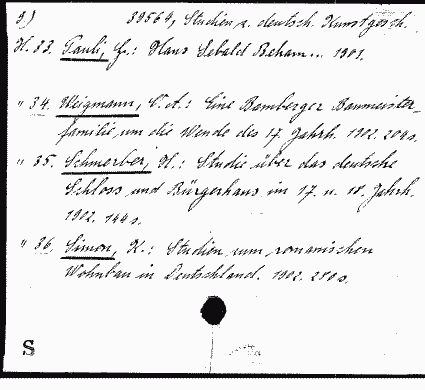 9.) 39564, Studien z. deutsch. Kunstgesch.
H. 33. Pauli, G.: Hans Sebald Beham... 1901.
" 34. Weigmann, O. A.: Eine Bamberger Baumeister-
familie um die Wende des 17. Jahrh. 1902. 200 s.
" 35. Schmerber, H.: Studie über das deutsche
Schloss und Bürgerhaus im 17. u. 18. Jahrh.
1902. 144 s.
" 36. Simon, K.: Studien zum romanischen
Wohnbau in Deutschland. 1902. 280 s.
S